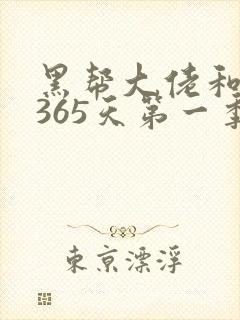 黑帮大佬和
365天第一季
東京漂浮